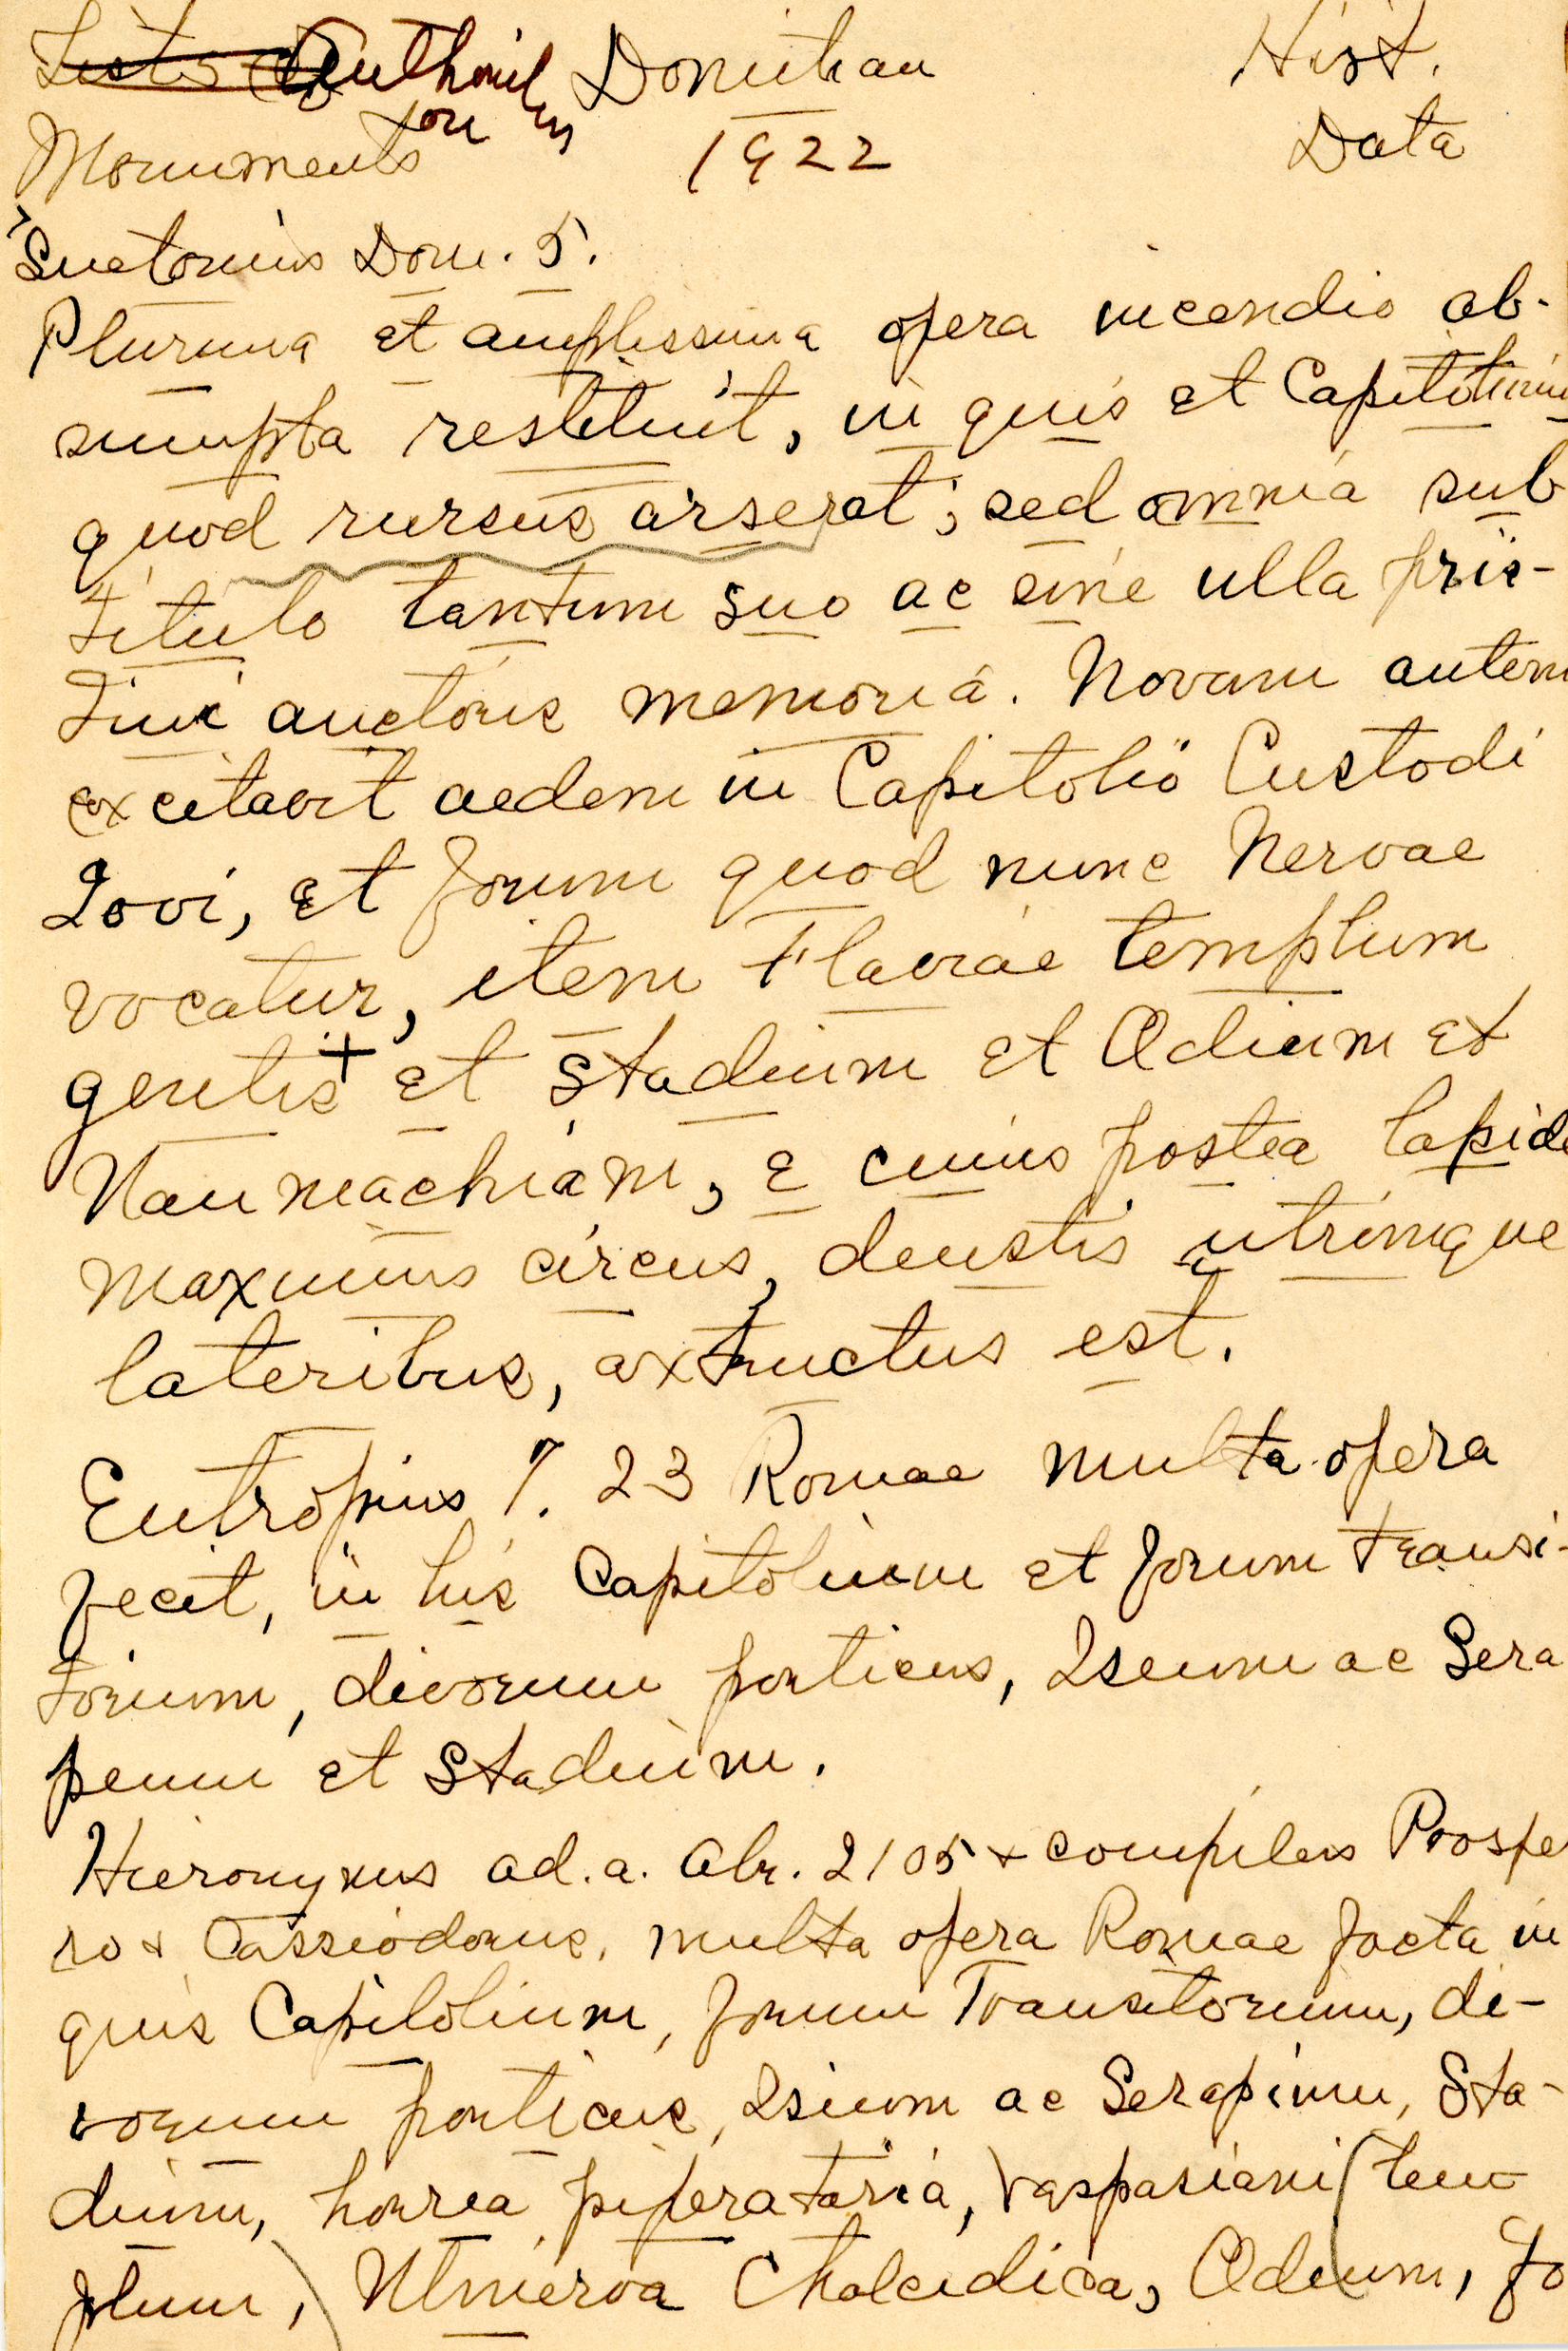 Authorities Domitian Hist.
on
Monuments 1922 Data
Suetonius Dom. 5.
Plurima et amplissima opera incendio ab-
sumpta restituit, in quis et Capitolium
quod rursus arserat; sed omnia sub
titulo tantum suo ac sine ulla pris-
tini auctoris memoria. Novam autem
excitavit aedem in Capitolio Custodi
Iovi, et forum quod nunc Nervae
vocatur, item Flaviae templum
gentis + et Stadium et Odium et
Naumachiam, e cuius postea lapide
maximus circus, deustis utrimque
lateribus, extructus est.
Eutropius 7. 23 Romae multa opera
fecit, in his Capitolium et forum transi-
torium, divorum porticus, Iseum ac Sera
peum et Stadium.
Hieronymus ad. a. Abr. 2105 + compilers Prospe
ro + Cassiodorus, multa opera Romae facta in
quis Capitolium, forum Transitorium, di-
vorum porticus, Isium ac Serapium, Sta-
dium, horrea piperataria, Vaspasiani (tem
plum,) Minerva Chalcidica, Odeum, fo